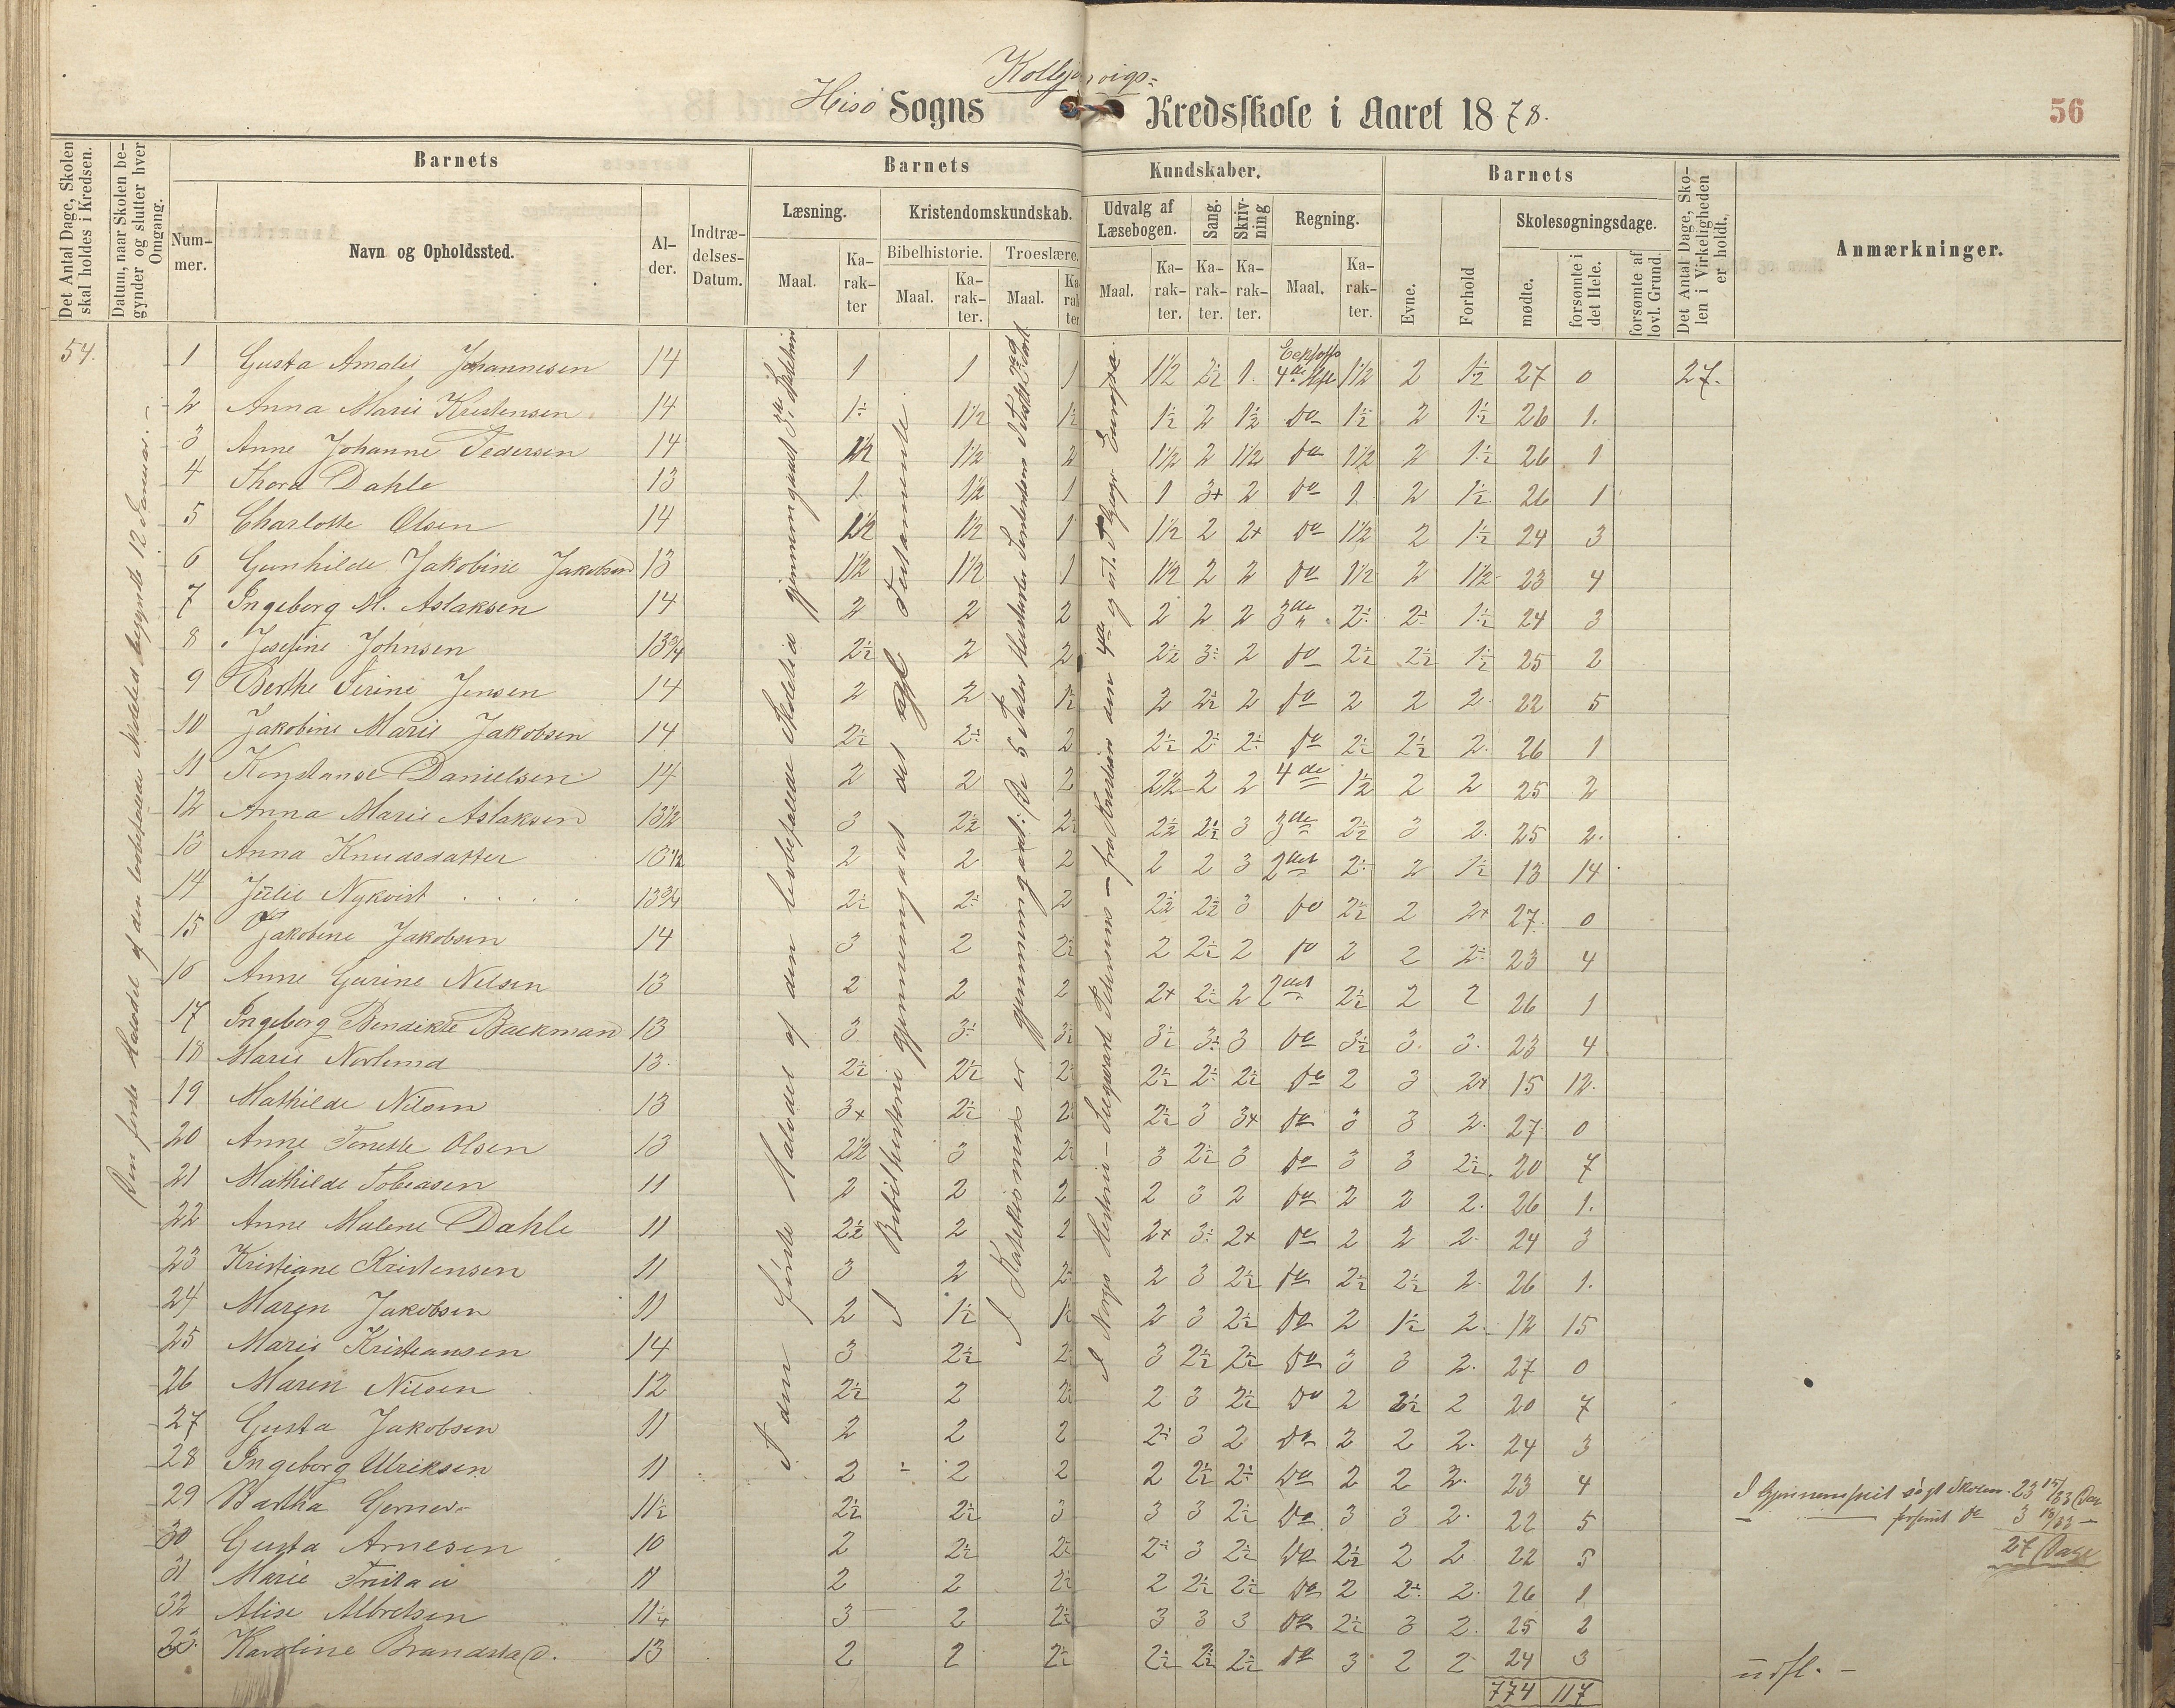 Kollevigs-
Hisö Sogns Kredsskole i Aaret 1878.
56
Det Antal Dage, Skolen skal holdes i Kredsen.
Datum, naar Skolen begynder og slutter hver Omgang.
Barnets
Barnets
Kundskaber.
Barnets
Det Antal Dage, Skolen i Virkeligheden er holdt.
Anmærkninger.
Nummer.
Navn og Opholdssted.
Alder.
Indtrædelses-Datum.
Læsning.
Kristendomskundskab.
Udvalg af Læsebogen.
Sang.
Skrivning
Regning.
Evne.
Forhold
Skolesøgningsdage.
Bibelhistorie.
Troeslære.
Maal.
Karakter
Maal.
Karakter.
Maal.
Karakter
Maal.
Karakter.
Karakter.
Karakter.
Maal.
Karakter.
mødte.
forsømte i det Hele.
forsømte af lovl. Grund.
54.
1 Gusta Amalie Johannesen 14 1 1 1 1½ 2½ 1. 4de 1½ 2 1½ 27 0 27.
2 Anna Marie Kristensen 14 1÷ 1½ 1½ 1½ 2 1½ do 1½ 2 1½ 26 1.
3 Anne Johanne Pedersen 14 1½ 1½ 2 1½ 2 1½ do 1½ 2 1½ 26 1
4 Thora Dahle 13 1. 1½ 1 1 3+ 2 do 1. 2 1½ 26 1
5 Charlotte Olsen 14 1½ 1½ 1 1½ 2 2+ do 1½ 2 1½ 24 3
6 Gunhilde Jakobine Jakobsen 13 1½ 1½ 1 1½ 2 2 do 1½ 2 1½ 23 4
7 Ingeborg M. Aslaksen 14 2 2 2 2 2 2 3de 2÷ 2÷ 1½ 24 3
8 Josefine Johnsen 13¾ 2½ 2 2 2½ 3÷ 2 do 2½ 2½ 1½ 25 2
9 Berthe Serine Jensen 14 2 2 1½ 2 2½ 2 do 2 2 2 22 5
10 Jakobine Marie Jakobsen 14 2½ 2÷ 2 2½ 2÷ 2÷ do 2½ 2½ 2. 26 1
11 Konstanse Danielsen 14 2 2 2 2½ 2 2 4de 1½ 2 2 25 2
12 Anna Marie Aslaksen 13½ 3 2½ 2½ 2½ 2½ 3 3de 2½ 3 2. 25 2.
13 Anna Knudsdatter 13½ 2 2 2 2 2 3 2det 2÷ 2 1½ 13 14
14 Julie Nykvist 13¾ 2½ 2÷ 2 2½ 2½ 3 do 2½ 2 2+ 27. 0
15 Jakobine Jakobsen 14 3 2 2½ 2 2½ 2 do 2 2 2÷ 23 4
16 Anne Gurine Nilsen 13 2 2 2 2+ 2½ 2 2det 2½ 2 2 26 1
17 Ingeborg Bendikte Backman 13 3 3÷ 3½ 3½ 3÷ 3 do 3½ 3. 3. 23 4
18 Marie Norlund 13. 2½ 2½ 2÷ 2½ 2÷ 2½ do 2 3 2+ 15 12.
19 Mathilde Nilsen 13 3+ 2½ 2½ 2½ 3 3+ do 3 3 2. 27 0
20 Anne Tonette Olsen 13 2½ 3 2½ 3 2½ 3 do 3 3 2½ 20 7
21 Mathilde Tobiasen 11 2 2 2 2 3 2 do 2 2 2. 26 1.
22 Anne Malene Dahle 11 2½ 2 2 2+ 3÷ 2+ do 2 2 2 24 3
23 Kristiane Kristensen 11 3 2 2÷ 2 3 2½ do 2½ 2½ 2. 26 1.
24 Maren Jakobsen 11 2 1½ 1½ 2 3 2½ do 2 1½ 2. 12 15
25 Marie Kristiansen 14 3 2½ 2½ 3 2½ 2½ do 3 3 2. 27 0
26 Maren Nilsen 12 2½ 2 2½ 2 3 2½ do 2 2½ 2 20 7
27 Gusta Jakobsen 11 2 2 2 2÷ 3 2 do 2 2 2. 24 3
28 Ingeborg Ulriksen 11 2 2 2 2 2½ 2÷ do 2 2 2. 23 4
29 Bertha Gerner 11½ 2½ 2½ 3 3 3 2½ do 3 3 2. 22 5
30 Gusta Arnesen 10 2 2½ 2½ 2÷ 3 2½ do 2½ 2 2 22 5
31 Marie Fristau 11 2 2 2½ 2 2½ 2½ do 2 2÷ 2. 26 1
32 Alise Albretsen 11¼ 3 2 2½ 3 3 3 do 2½ 3 2. 25 2
33. Karoline Brandstad. 13 2 2 2½ 2½ 2½ 2½ do 3 2 2 24 3
774 117
Den første Halvdel af den lovbefalede Skoletid begyndte 12 Januar.
I den første Halvdel af den lovbefalede Skoletid gjennemgaaet 3die
I Bibelhistorien gjennemgaaet det nye Testamente.
I Katekismus er gjennemgaaet: De 5 Parter
I Norges Historie – Siegwart Petersens – fra Kristian den 4de
I Gjennemsnit søgt Skolen 23 15/33 Dag
forsømt do 3 18/33 –
27 Dage
udfl. –